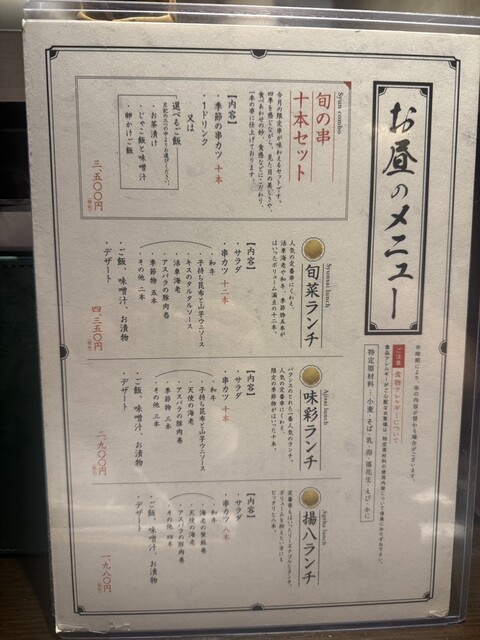 お昼のメニュー
※時期により、串の内容が替わる場合がございます。
ご注意 食物アレルギーについて
特定原材料…小麦・そば・乳・卵・落花生・えび・かに
Syun combo
旬の串
十本セット
今月の限定串が味わえるセットです。
四季を感じながら、見た目の美しさや、
食べあわせの妙、食感などにこだわり、
一本の串に仕上げております。
【内容】
・季節の串カツ 十本
・1ドリンク
又は
選べるご飯
・お茶漬け
・じゃこ飯と味噌汁
・卵かけご飯
三、五〇〇円
Syunsai lunch
旬菜ランチ
人気の定番串にくわえ、
活車海老や和牛、季節物五本が
はいったボリューム満点の十二本。
【内容】
・サラダ
・串カツ 十二本
・和牛
・子持ち昆布と山芋ウニソース
・活車海老
・キスのタルタルソース
・アスパラの豚肉巻
・季節物 五本
・その他 二本
・ご飯、味噌汁、お漬物
・デザート
四、三五〇円
Ajisai lunch
味彩ランチ
バランスのとれた一番人気のランチ。
人気の定番串にくわえ、
限定の季節物がはいった十本。
【内容】
・サラダ
・串カツ 十本
・和牛
・子持ち昆布と山芋ウニソース
・天使の海老
・アスパラの豚肉巻
・季節物 三本
・その他 三本
・ご飯、味噌汁、お漬物
・デザート
二、九〇〇円
Ageha lunch
揚八ランチ
ピッタリな八本。
【内容】
・サラダ
・串カツ 八本
・和牛
・海老の紫蘇巻
・天使の海老
・アスパラの豚肉巻
・その他 四本
・ご飯、味噌汁、お漬物
・デザート
一、九八〇円